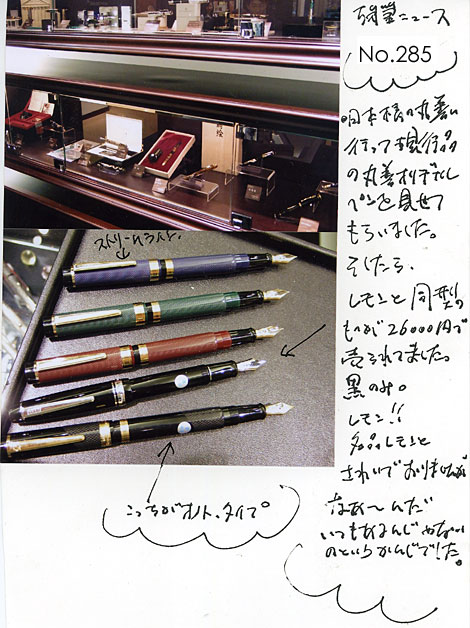 No.285
日本橋の丸善に
行って現行品
の丸善オリヂナル
ペンを見せて
もらいました。
そしたら、
レモンと同型の
ものが26000円で
売られてました。
黒のみ。
レモン!!
名品レモンと
されいでおりませんが
なあ〜んだ
いつもあるんじゃない
のというかんじでした。
ストリームライン、
こっちがオノト、タイプ。